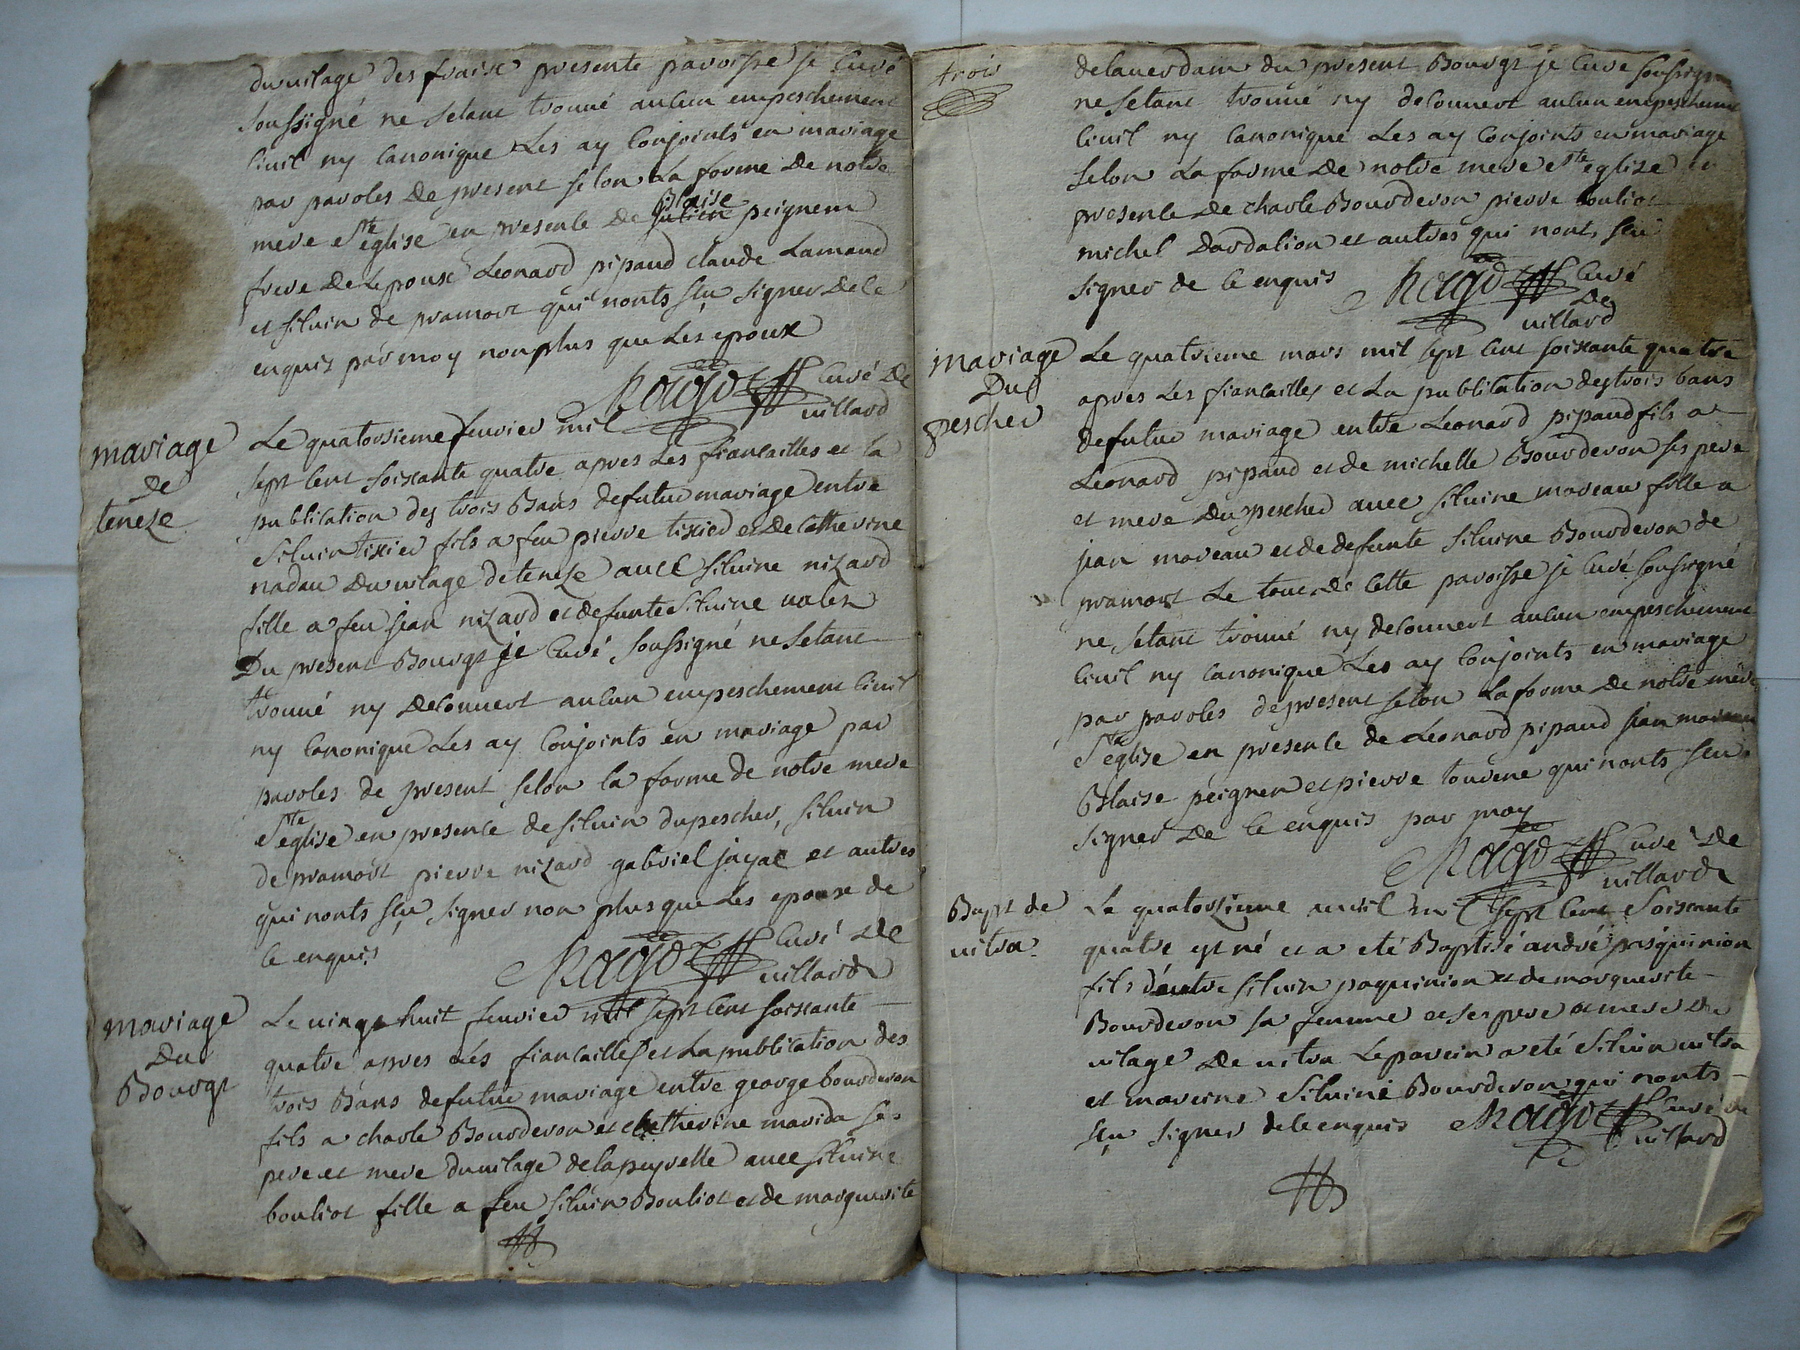 du vilage des fraise presente paroisse je Curé
soussigné ne setant trouué aucun empeschement
Ciuil ny Canonique Les ay Conjoints en mariage
par paroles De present selon La forme De notre
mere Ste eglise en presence de Blaise peignen
frere De Lepouse Leonard pipaud Claude Lamaud
et siluin de pramort qui nonts sçu signer De Ce
enquis par moy nonplus que Les epoux
Curé De
uillard
mariage
De
teneze
Le quatorsieme feurier mil
sept Cent soixante quatre apres Les fiancailles et la
publication des trois Bans defutur mariage entre
Siluin tixier fils a feu pierre tixier et de Catherine
nadau Du uilage de teneze auec siluine nizard
fille a feu jean nizard et defunte siluine
Du present Bourgt je Curé soussigné ne setant
trouué ny decouuert aucun empeschement Ciuil
ny Canonique Les ay Conjoints en mariage par
paroles de present selon la forme de notre mere
Ste eglise en presence de siluin dupescher, siluin
de pramort pierre nizard gabriel jayac et autres
qui nonts sçu signer non plus que Les epoux de
Ce enquis
Curé De
uillard
mariage
Du
Bourgt
Le vingt huit feurier mil sept Cent soixante
quatre apres Les fiancailles et La publication des
trois Bans defutur mariage entre george bourderon
fils a charle Bourderon et Catherine marida ses
pere et mere du uilage de lapuyrelle auec siluine
bouliot fille a feu siluin Bouliot et de marguerite
trois
delauerdam du present Bourgt je Cure soussigné
ne setant trouué ny decouuert aucun empeschement
Ciuil ny Canonique Les ay Conjoints en mariage
selon La forme De notre mere Ste eglise en
presence De charle Bourderon pierre bouliot
michel Dardalion et autres qui nonts sçu
signer de Ce enquis
Curé
De
uillard
mariage
Du
pescher
Le quatrieme mars mil sept Cent soixante quatre
apres Les fiancailles et La publication des trois bans
defutur mariage entre Leonard pipaud fils a
Leonard pipaud et de michelle Bourderon ses pere
et mere Du pescher auec siluine moreau fille a
jean moreau et de defunte siluine Bourderon de
pramort Le tout de Cette paroisse je Curé soussigné
ne setant trouué ny decouuert aucun empeschement
Ciuil ny Canonique Les ay Conjoints en mariage
par paroles de present selon La forme De notre mere
Ste eglise en presence de Leonard pipaud jean moreau
Blaise peignen et pierre qui nonts sçu
signer De Ce enquis par moy
Curé De
uillard
Bapt de
uitra
Le quatorzieme auril mil sept Cent Soixante
quatre est né et a eté Baptisé andré pasquinion
fils dentre siluin paquinion et de marguerite
Bourderon sa femme et ses pere et mere du
uilage De uitra Le parein a eté Siluin uitra
et mareine Siluine Bourderon qui nonts
sçu signer de Ce enquis
Curé de
uillard